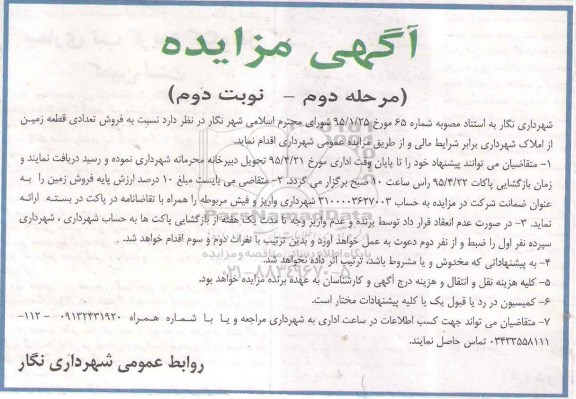 آگهی مزایده
(مرحله دوم – نوبت دوم)
شهرداری نگار به استناد مصوبه شماره ۶۵ مورخ ۹۵/۱/۲۵ شورای محترم اسلامی شهر نگار در نظر دارد نسبت به فروش تعدادی قطعه زمین
از املاک شهرداری برابر شرایط مالی و از طریق مزایده عمومی شهرداری اقدام نماید.
۱- متقاضیان می توانند پیشنهاد خود را تا پایان وقت اداری مورخ ۹۵/۴/۲۱ تحویل دبیرخانه محرمانه شهرداری نموده و رسید دریافت نمایند و
زمان بازگشایی پاکات ۹۵/۴/۲۲ راس ساعت ۱۰ صبح برگزار می گردد. ۲- متقاضی می بایست مبلغ ۱۰ درصد ارزش پایه فروش زمین را به
عنوان ضمانت شرکت در مزایده به حساب ۳۱۰۰۰۰۳۶۲۷۰۰۳ شهرداری واریز و فیش مربوطه را همراه با تقاضانامه در پاکت در بسته ارائه
نماید. ۳- در صورت عدم انعقاد قرار داد توسط برنده و عدم واریز وجه تا مدت یک هفته از بازگشایی پاکت ها به حساب شهرداری ، شهرداری
سپرده نفر اول را ضبط و از نفر دوم دعوت به عمل خواهد آورد و بدین ترتیب با نفرات دوم و سوم اقدام خواهد شد.
۴- به پیشنهاداتی که مخدوش و یا مشروط باشد، ترتیب اثر داده نخواهد شد.
۵- کلیه هزینه نقل و انتقال و هزینه درج آگهی و کارشناسان به عهده برنده مزایده خواهد بود.
۶- کمیسیون در رد یا قبول یک یا کلیه پیشنهادات مختار است.
۷- متقاضیان می توانند جهت کسب اطلاعات در ساعت اداری به شهرداری مراجعه و یا با شماره همراه ۰۹۱۳۲۴۳۱۹۲۰ -۱۱۲-
۰۳۴۳۳۵۵۸۱۱۱ تماس حاصل نمایند.
روابط عمومی شهرداری نگار
ParsNamadData
۰۲۱-۸۸۳۴۹۶۷۰-۵